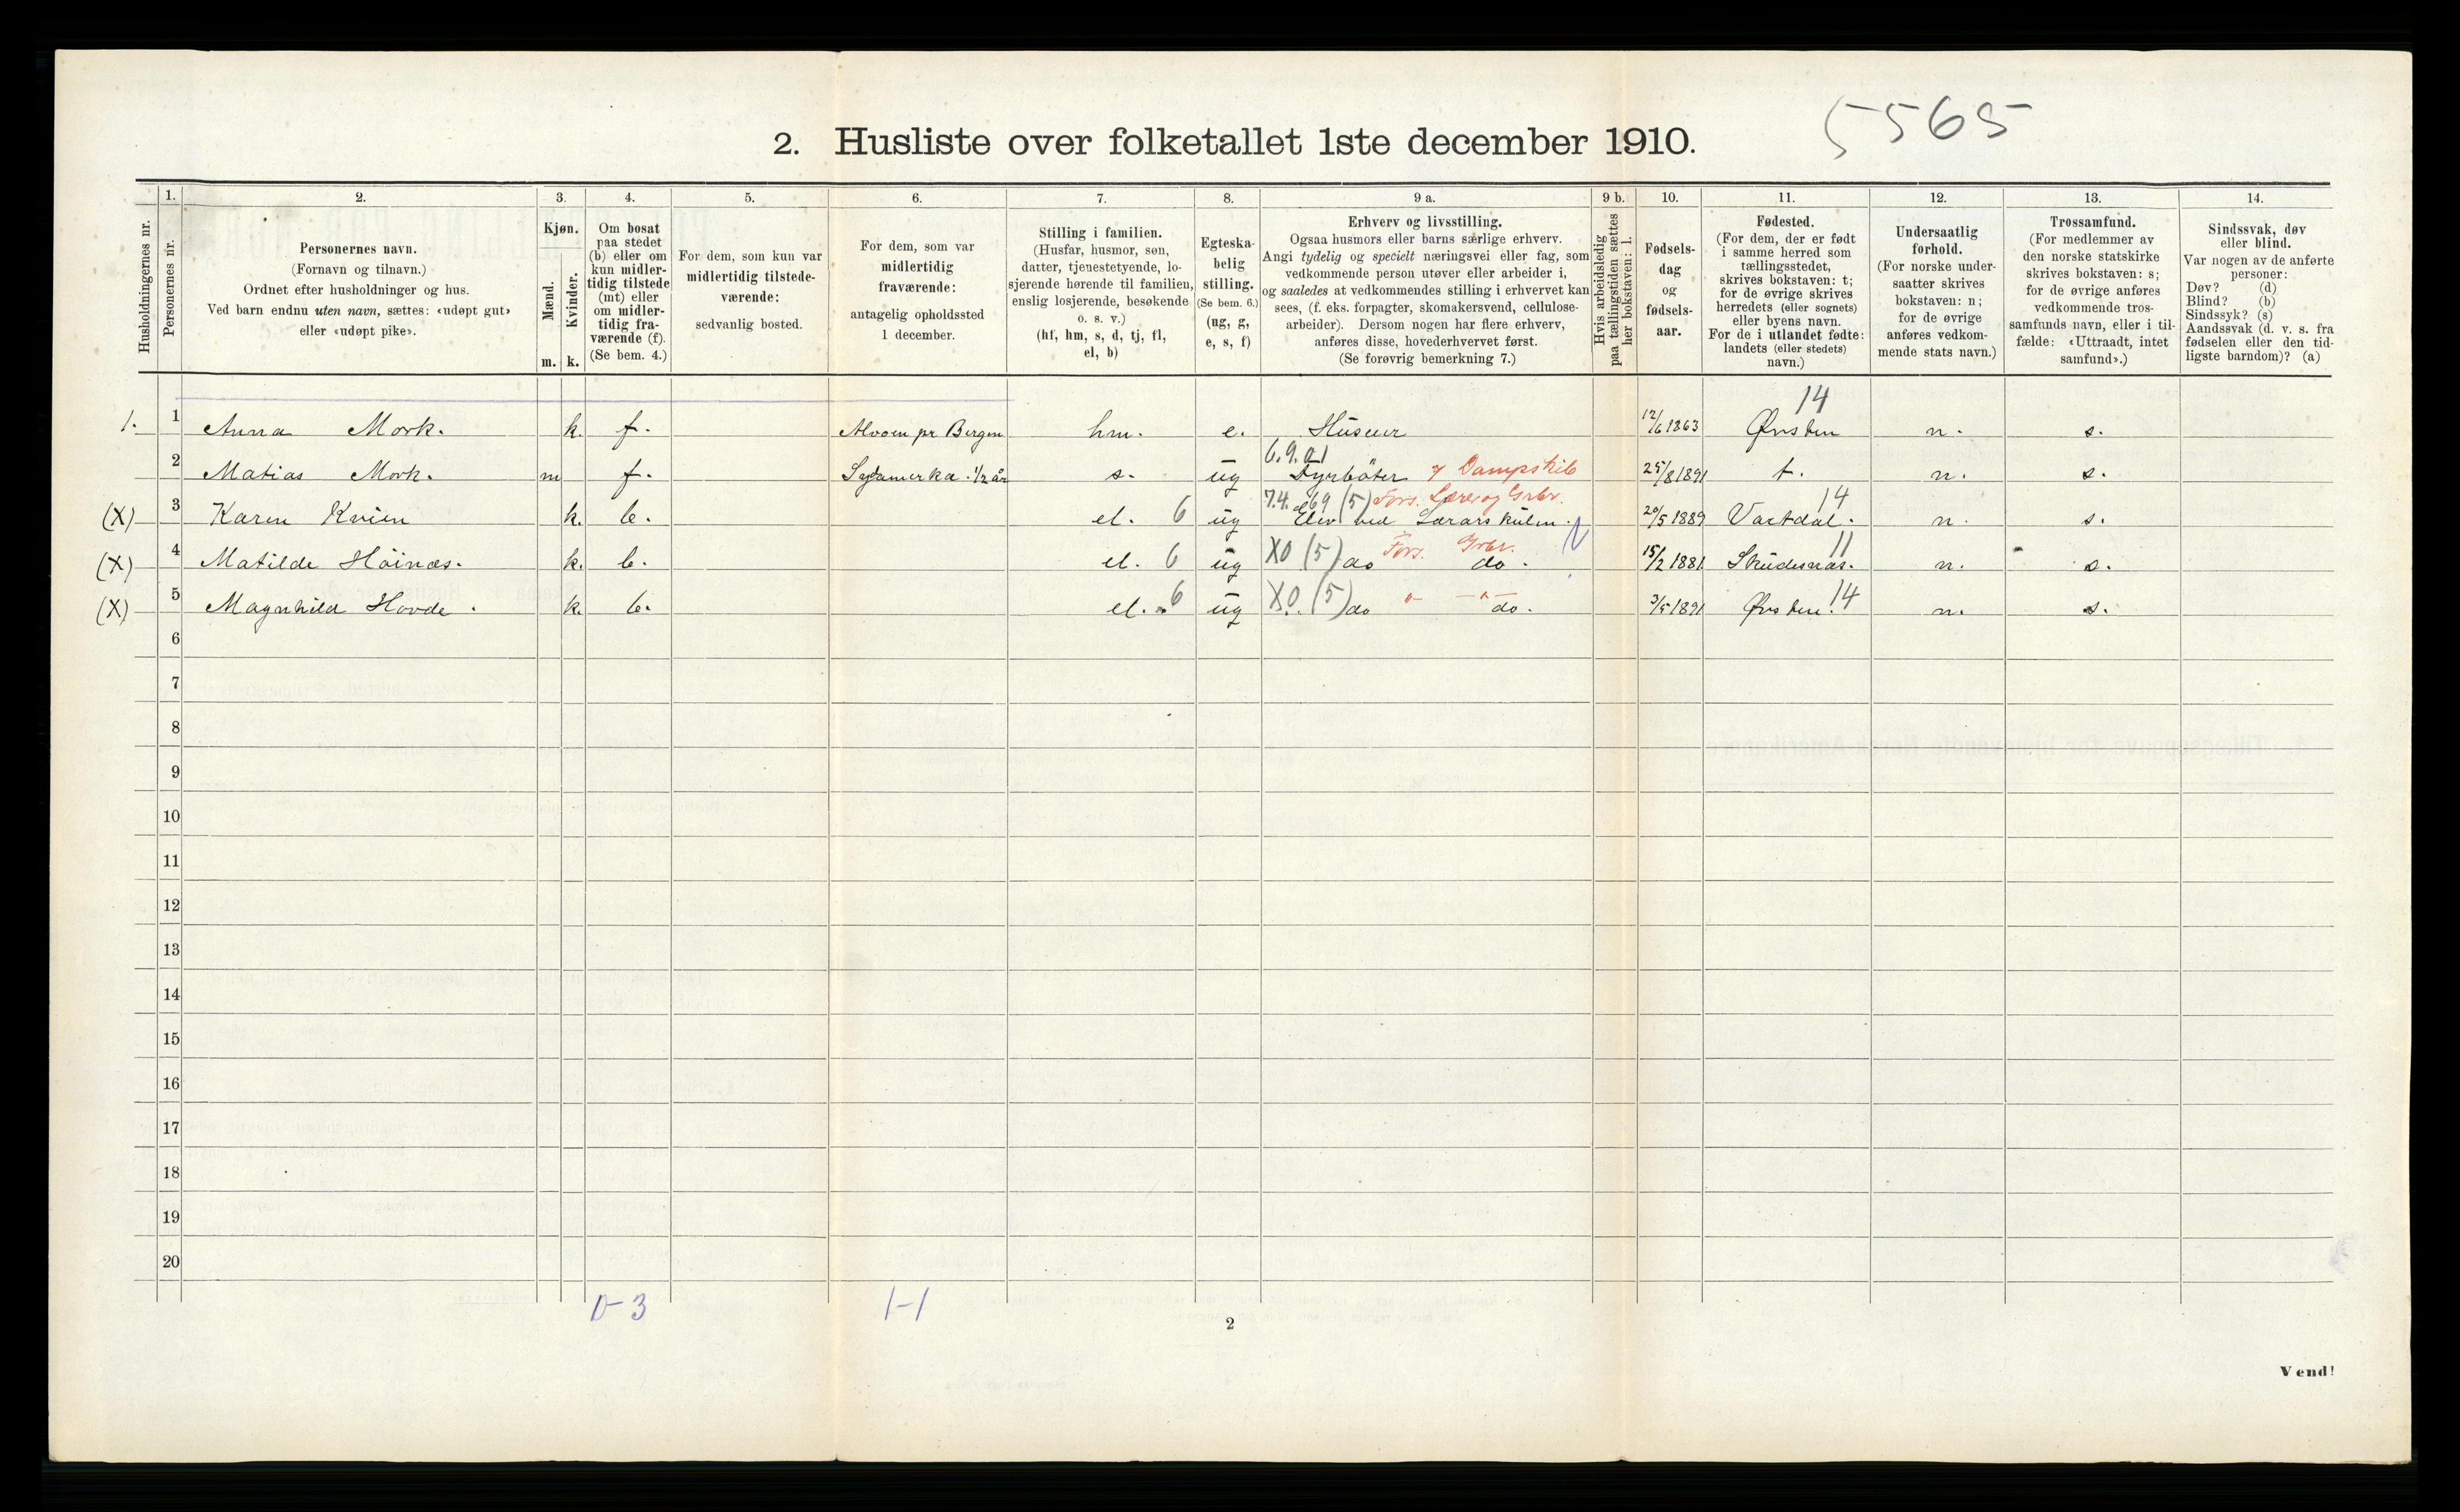 5565
2. Husliste over folketallet 1ste december 1910.
Husholdningernes nr.
1.
Personernes nr.
2.
Personernes navn.
(Fornavn og tilnavn.)
Ordnet efter husholdninger og hus.
Ved barn endnu uten navn, sættes: «udøpt gut»
eller «udøpt pike».
3.
Kjøn.
Mænd.
Kvinder.
m. k.
4.
Om bosat
paa stedet
(b) eller om
kun midler-
tidig tilstede
(mt) eller
om midler-
tidig fra-
værende (f).
(Se bem. 4.)
5.
For dem, som kun var
midlertidig tilstede-
værende:
sedvanlig bosted.
6.
For dem, som var
midlertidig
fraværende:
antagelig opholdssted
1 december.
7.
Stilling i familien.
(Husfar, husmor, søn,
datter, tjenestetyende, lo-
sjerende hørende til familien,
enslig losjerende, besøkende
o. s. v.)
(hf, hm, s, d, tj, fl,
el, b)
8.
Egteska-
belig
stilling.
(Se bem. 6.)
(ug, g,
e, s, f)
9 a.
Erhverv og livsstilling.
Ogsaa husmors eller barns særlige erhverv.
Angi tydelig og specielt næringsvei eller fag, som
vedkommende person utøver eller arbeider i,
og saaledes at vedkommendes stilling i erhvervet kan
sees, (f. eks. forpagter, skomakersvend, cellulose-
arbeider). Dersom nogen har flere erhverv,
anføres disse, hovederhvervet først.
(Se forøvrig bemerkning 7.)
9 b.
Hvis arbeidsledig
paa tællingstiden sættes
her bokstaven: l.
10.
Fødsels-
dag
og
fødsels-
aar.
11.
Fødested.
(For dem, der er født
i samme herred som
tællingsstedet,
skrives bokstaven: t;
for de øvrige skrives
herredets (eller sognets)
eller byens navn.
For de i utlandet fødte:
landets (eller stedets)
navn.)
12.
Undersaatlig
forhold.
(For norske under-
saatter skrives
bokstaven: n;
for de øvrige
anføres vedkom-
mende stats navn.)
13.
Trossamfund.
(For medlemmer av
den norske statskirke
skrives bokstaven: s;
for de øvrige anføres
vedkommende tros-
samfunds navn, eller i til-
fælde: «Uttraadt, intet
samfund».)
14.
Sindssvak, døv
eller blind.
Var nogen av de anførte
personer:
Døv? (d)
Blind? (b)
Sindssyk? (s)
Aandssvak (d. v. s. fra
fødselen eller den tid-
ligste barndom)? (a)
14
1. 1 Anna Mork. k. f. Alvoen pr Bergen hm. e. Huseier 12/6 1863 Ørsten n. s.
6.9.01
2 Matias Mork. m f. Sydamerka 1/2 år s. ug Fyrbøter 7 Dampskib 25/8 1891 t. n. s.
7.4. 69 (5) Fors. Lærer og Grbr. 14
(X) 3 Karen Kvien k. b. el. 6 ug Elev ved Lærarskulen. 20/5 1889 Vartdal. n. s.
11
(X) 4 Matilde Höinæs. k. b. el. 6 ug X0 (5) do Fors. Grbr. do. 15/2 1881 Skudesnæs. n. s.
(X) 5 Magnhild Hovde. k. b. el. 6 ug X0. (5) do " -"- do. 3/5 1891 Ørsten. 14 n. s.
6
7
8
9
10
11
12
13
14
15
16
17
18
19
20
0-3 1-1
2
Vend!